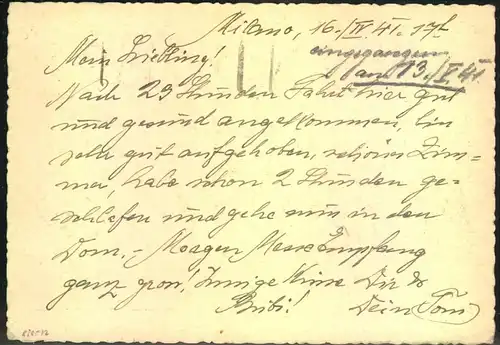 Milano, 16./IV 41. 17h
eingegangen
am 13./V 41.
Mein Liebling!
Nach 23 Stunden Fahrt hier gut
und gesund angekommen, bin
sehr gut aufgehoben, schönes Zim=
mer, habe schon 2 Stunden ge=
schlafen und gehe nun in den
Dom. - Morgen Messe Empfang
ganz gross! Innige Küsse Dir &
Bubi! Dein Toni